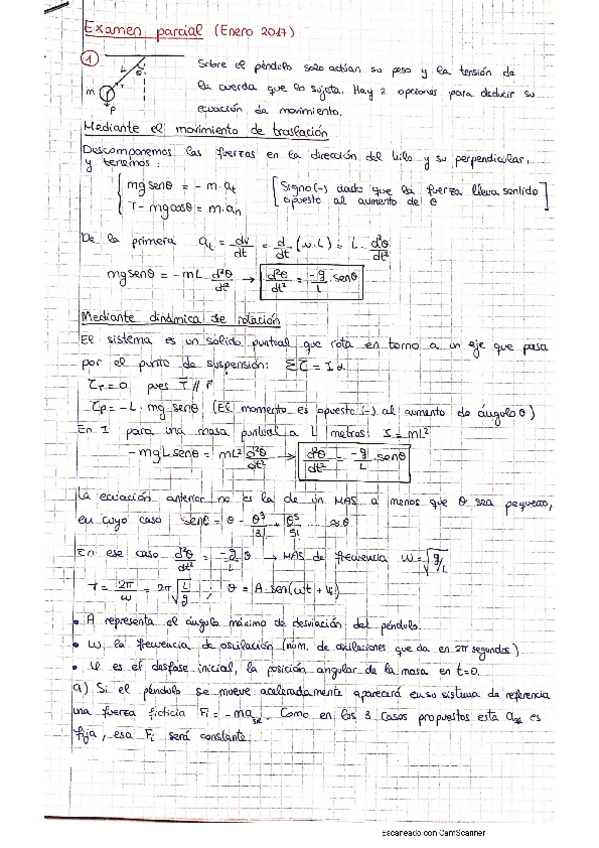 Examen parcial (Enero 2017)
1
Sobre el péndulo solo actúan su peso y la tensión de
la cuerda que lo sujeta. Hay 2 opciones para deducir su
ecuación de movimiento.
L θ
m T
P
Mediante el movimiento de traslación
Descomponemos las fuerzas en la dirección del hilo y su perpendicular,
y tenemos:
mg senθ = - m·at [Signo (-) dado que la fuerza lleva sentido
T - mg cosθ = m·an opuesto al aumento de θ]
De la primera at = dv/dt = d/dt (ω·L) = L·d²θ/dt²
mg senθ = - mL·d²θ/dt² → d²θ/dt² = -g/L·senθ
Mediante dinámica de rotación
El sistema es un sólido puntual que rota en torno a un eje que pasa
por el punto de suspensión: Στ = Iα
τT = 0 pues T // r
τP = -L·mg senθ (El momento es opuesto (-) al aumento de ángulo θ)
En I para una masa puntual a L metros: I = mL²
- mgL senθ = mL² d²θ/dt² → d²θ/dt² = -g/L senθ
La ecuación anterior no es la de un MAS a menos que θ sea pequeño,
en cuyo caso senθ = θ - θ³/3! + θ⁵/5! ... ≈ θ
En ese caso d²θ/dt² = -g/L θ → MAS de frecuencia ω = √g/L
T = 2π/ω = 2π√L/g ; θ = A·sen(ωt + φ)
• A representa el ángulo máximo de desviación del péndulo.
• ω, la frecuencia de oscilación (núm. de oscilaciones que da en 2π segundos)
• φ es el desfase inicial, la posición angular de la masa en t=0.
a) Si el péndulo se mueve aceleradamente aparecerá en su sistema de referencia
una fuerza ficticia Fi = - m a. Como en los 3 casos propuestos esta a es
fija, esa Fi será constante.
Escaneado con CamScanner